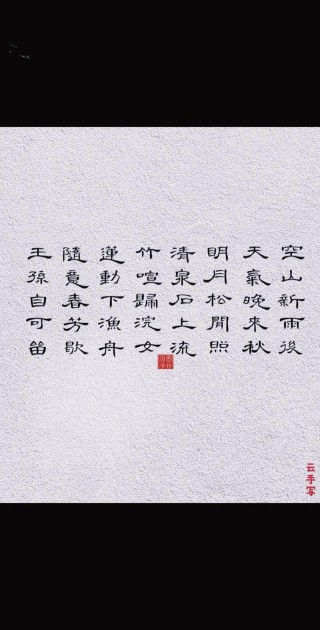 空山新雨後
天氣晚來秋
明月松間照
清泉石上流
竹喧歸浣女
蓮動下漁舟
隨意春芳歇
王孫自可留
云手写